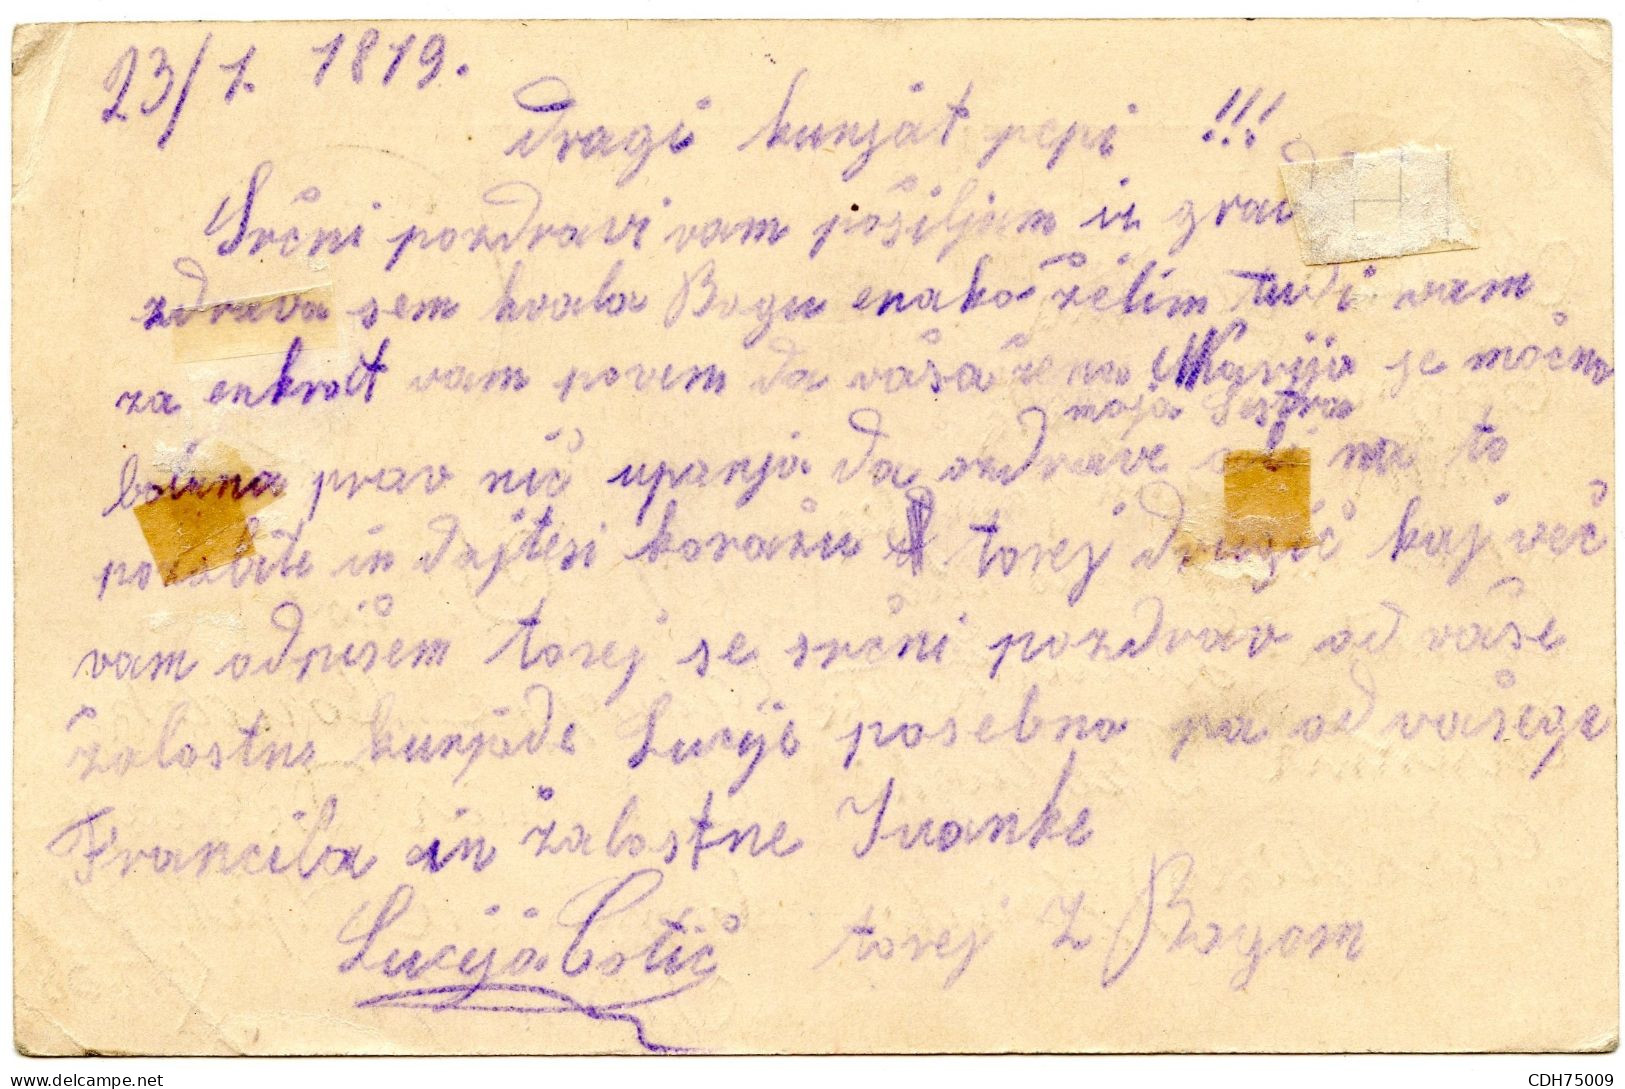 23/1. 1819.
Dragi kunját pepi !!!
Srčni pozdravi vam pošiljam in
zdrava sem hvala Bogu enako želim tudi vam
za enkrat vam povem da vaša žena Marija je močno
moja Sestra
bolana prav nič upanja da ozdrave na to
in dajtesi koražu torej drugič kaj več
vam odpišem torej se srčni pozdrav od vaše
žalostne kunjáde Lucije posebno pa od vašega
Francila in žalostne Ivanke
Lucija Cotič torej Z Bogom
CDH75009
delcampe.net